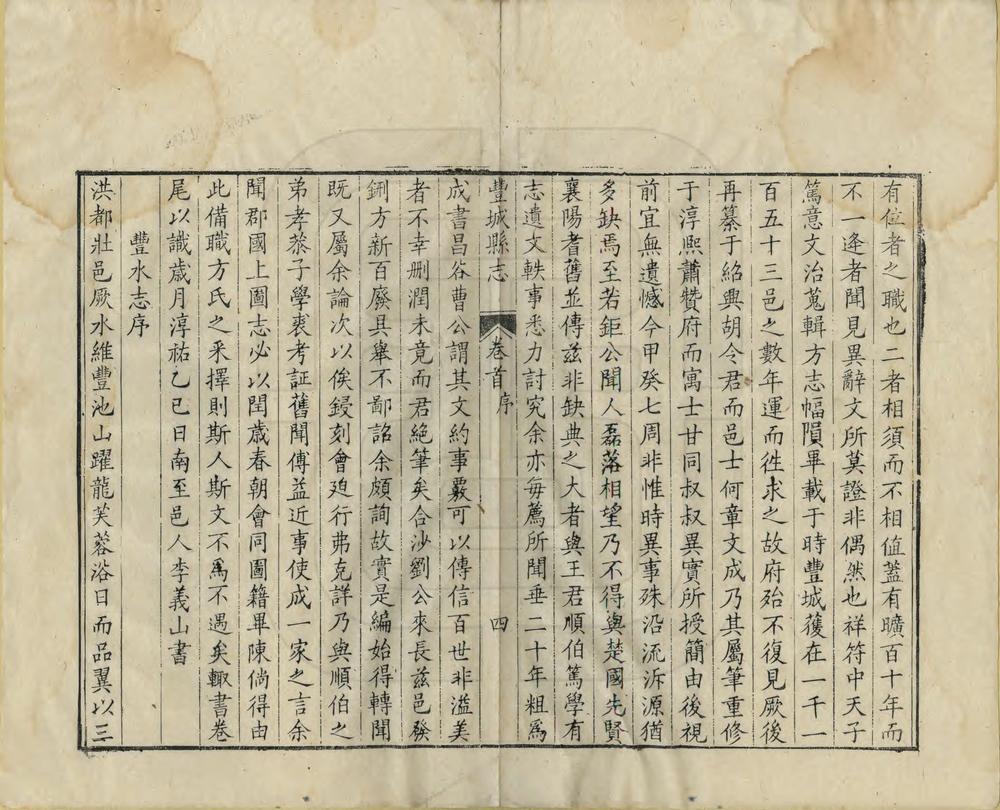 有位者之職也二者相須而不相值蓋有曠百十年而
不一逢者聞見異辭文所莫證非偶然也祥符中天子
篤意文治蒐輯方志幅隕畢載于時豐城蓋在一千一
百五十三邑之數年運而徃求之故府殆不復見厥後
再纂于紹興胡令君而邑士何童文成乃其屬筆重修
于淳熙蕭贊府而寓士甘同叔叔異實所授簡由後視
前宜無遺憾今甲癸七周非惟時異事殊沿流泝源猶
多缺焉至若鉅公聞人磊落相望乃不得與楚國先賢
襄陽耆舊並傳茲非缺典之大者與王君順伯篤學有
志遺文軼事悉力討究余亦每薦所聞垂二十年粗為
豐城縣志
卷首
序
四
成書昌谷曹公謂其文約事覈可以傳信百世非溢美
者不幸刪潤未竟而君絕筆矣合沙劉公來長茲邑發
鉶方新百廢具舉不鄙詒余頗詢故實是編始得轉聞
既又屬余論次以俟鋟刻會廹行弗克詳乃與順伯之
弟孝恭子學裘考証舊聞傅益近事使成一家之言余
聞郡國上圖志必以閏歲春朝會同圖籍畢陳倘得由
此備職方氏之采擇則斯人斯文不為不遇矣輒書卷
尾以識歲月淳祐乙巳日南至邑人李義山書
豐水志序
洪都壯邑厥水維豐池山躍龍芙蓉浴日而品翼以三